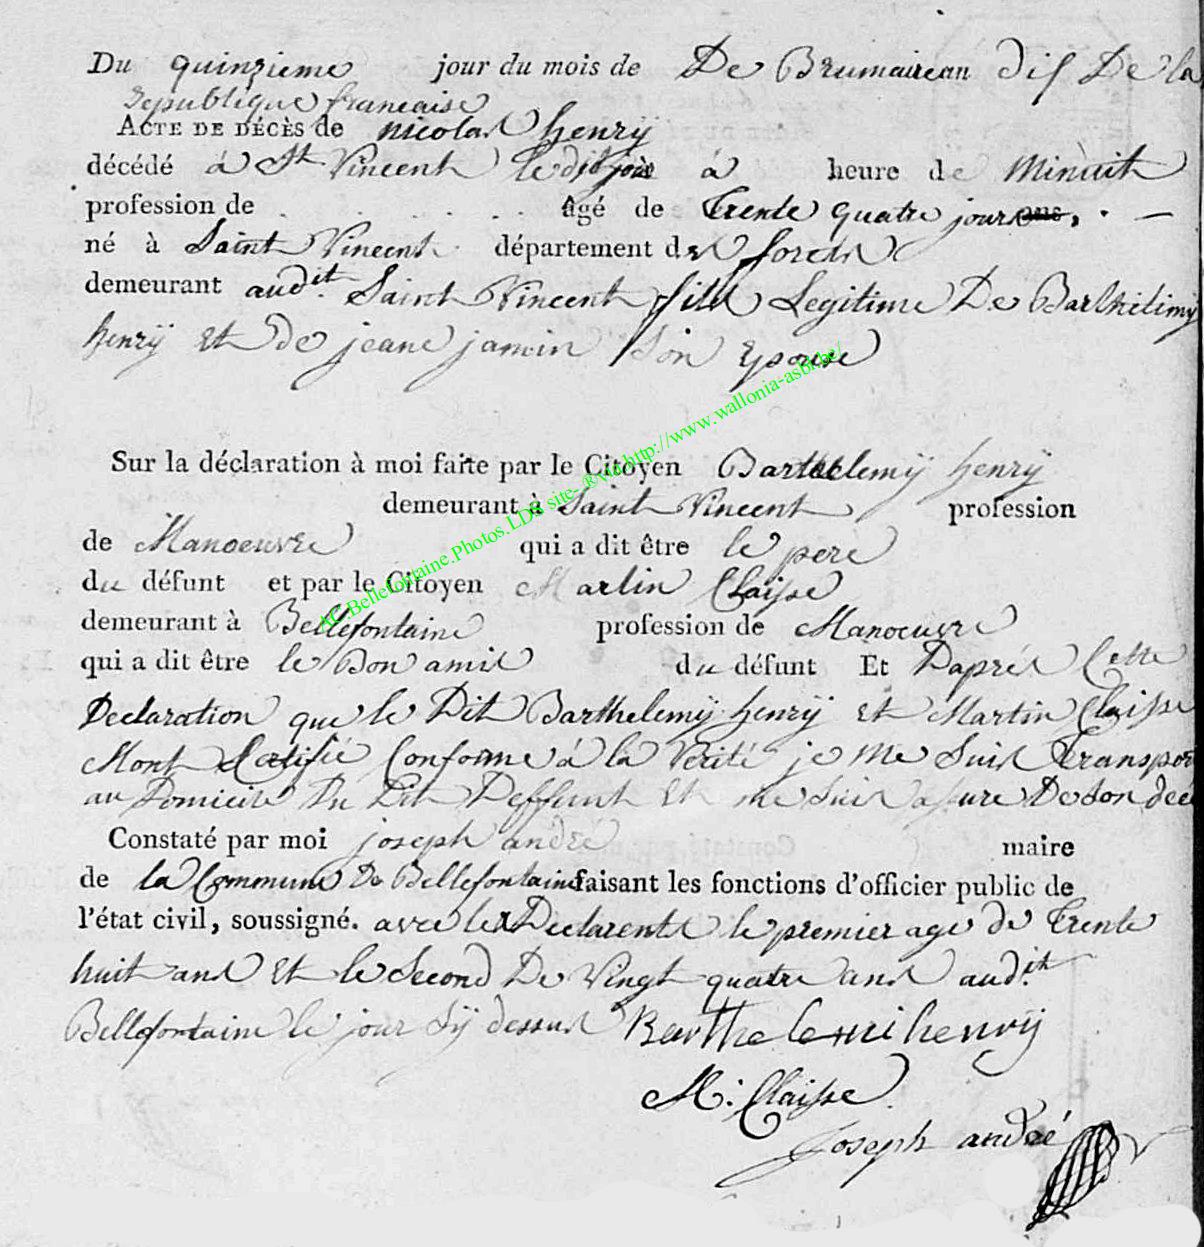 Du quinzieme jour du mois de De Brumairean dis De la
republique francaise
ACTE DE DÉCÈS de nicolas henrÿ
décédé á St Vincent le dit jois á heure de Minuit
profession de . . . . . . . âgé de trente quatre jours ans, . —
né à Saint Vincent département des forets
demeurant audit Saint Vincent fils Legitime De Barthélimy
henrÿ et de jeane janvin Son Epouse
Sur la déclaration à moi faite par le Citoyen Barthelemÿ henrÿ
demeurant à Saint Vincent profession
de Manoeuvre qui a dit être le pere
du défunt et par le Citoyen Martin Claisse
demeurant à Bellefontaine profession de Manoeuvre
qui a dit être le Bon amis du défunt Et Daprés Cette
Declaration que le Dit Barthelemÿ henrÿ et Martin Claisse
Mont Certifié Conforme á la Verité je me Suis transpor
au Domicile Du Dit Deffunt Et me suis assure De son dec
Constaté par moi joseph andré maire
de la Commune De Bellefontaine faisant les fonctions d'officier public de
l'état civil, soussigné. avec les Declarents le premier age de trente
huit ans Et le Second De Vingt quatre ans audit
Bellefontaine le jour Sÿ dessus Barthelemi henrÿ
M: Claisse
Joseph andré
AC.Bellefontaine.Photos.LDB site-®via http://www.wallonia-asbl.be/